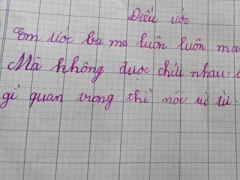 Điều ước
Em ước ba mẹ luôn luôn ma
Mà không được chửi nhau
gì quan trọng thì nói từ từ.